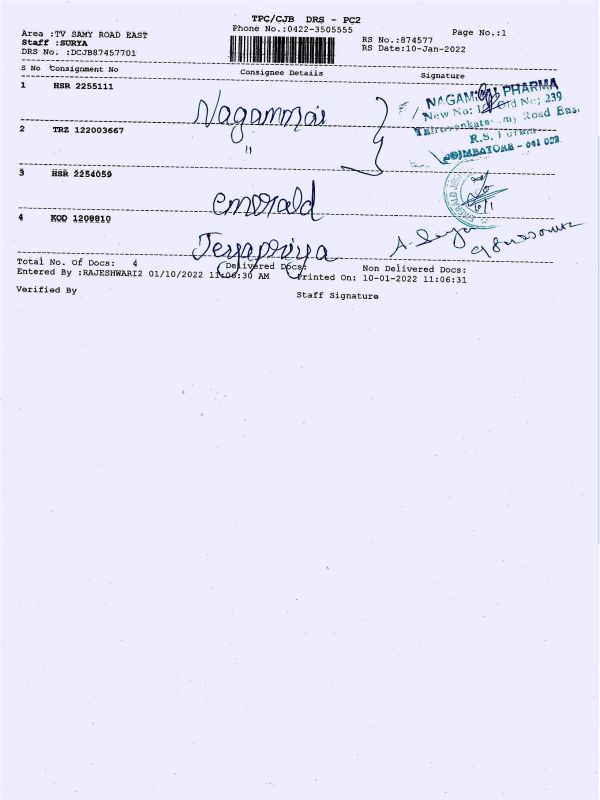 TPC/CJB DRS - PC2
Area :TV SAMY ROAD EAST
Phone No.:0422-3505555
Page No.:1
Staff :SURYA
RS No.:874577
DRS No. :DCJB87457701
RS Date:10-Jan-2022
S No Consignment No Consignee Details Signature
1 HSR 2255111
Nagammai
NAGAMMAI PHARMA
New No: Old No: 239
2 TRZ 122003667
"
Road East
R.S. Puram
COIMBATORE - 641 002
3 HSR 2254059
emorald
4 KOD 1208810
Jeyapriya
Total No. of Docs: 4 Delivered Docs: Non Delivered Docs:
Entered By :RAJESHWARI2 01/10/2022 11:06:30 AM Printed On: 10-01-2022 11:06:31
Verified By Staff Signature